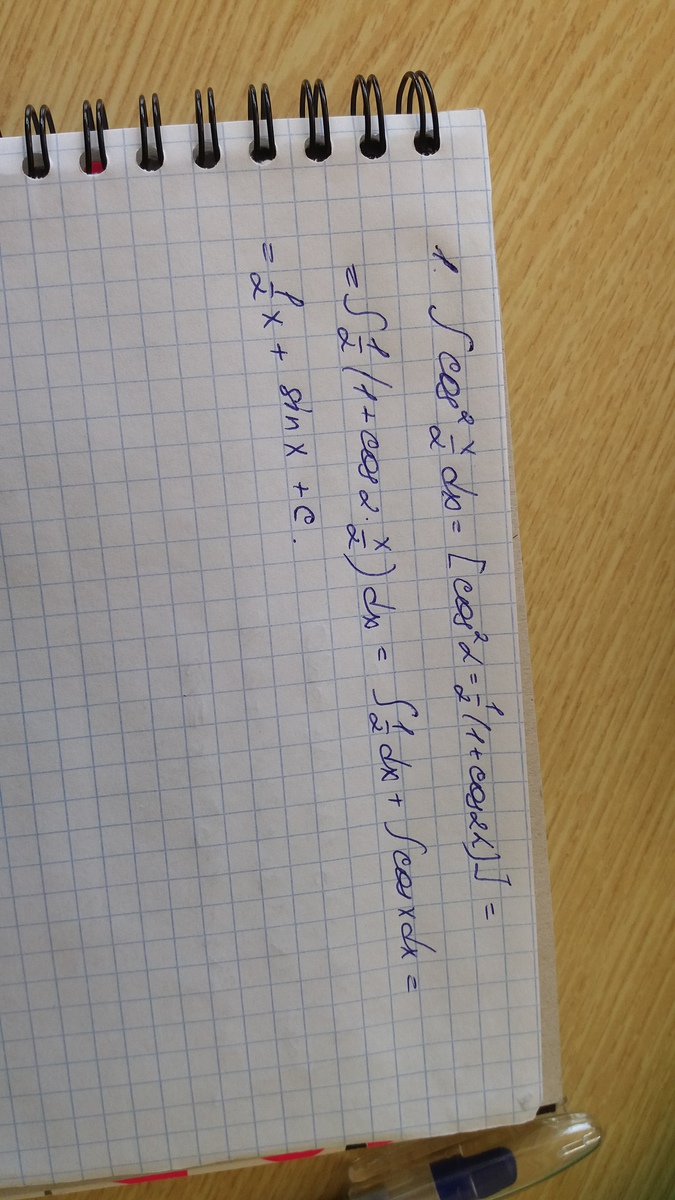 1. ∫ cos² x/2 dx = [cos² α = 1/2 (1 + cos 2α)] =
= ∫ 1/2 (1 + cos 2 · x/2) dx = ∫ 1/2 dx + ∫ cos x dx =
= 1/2 x + sin x + C.